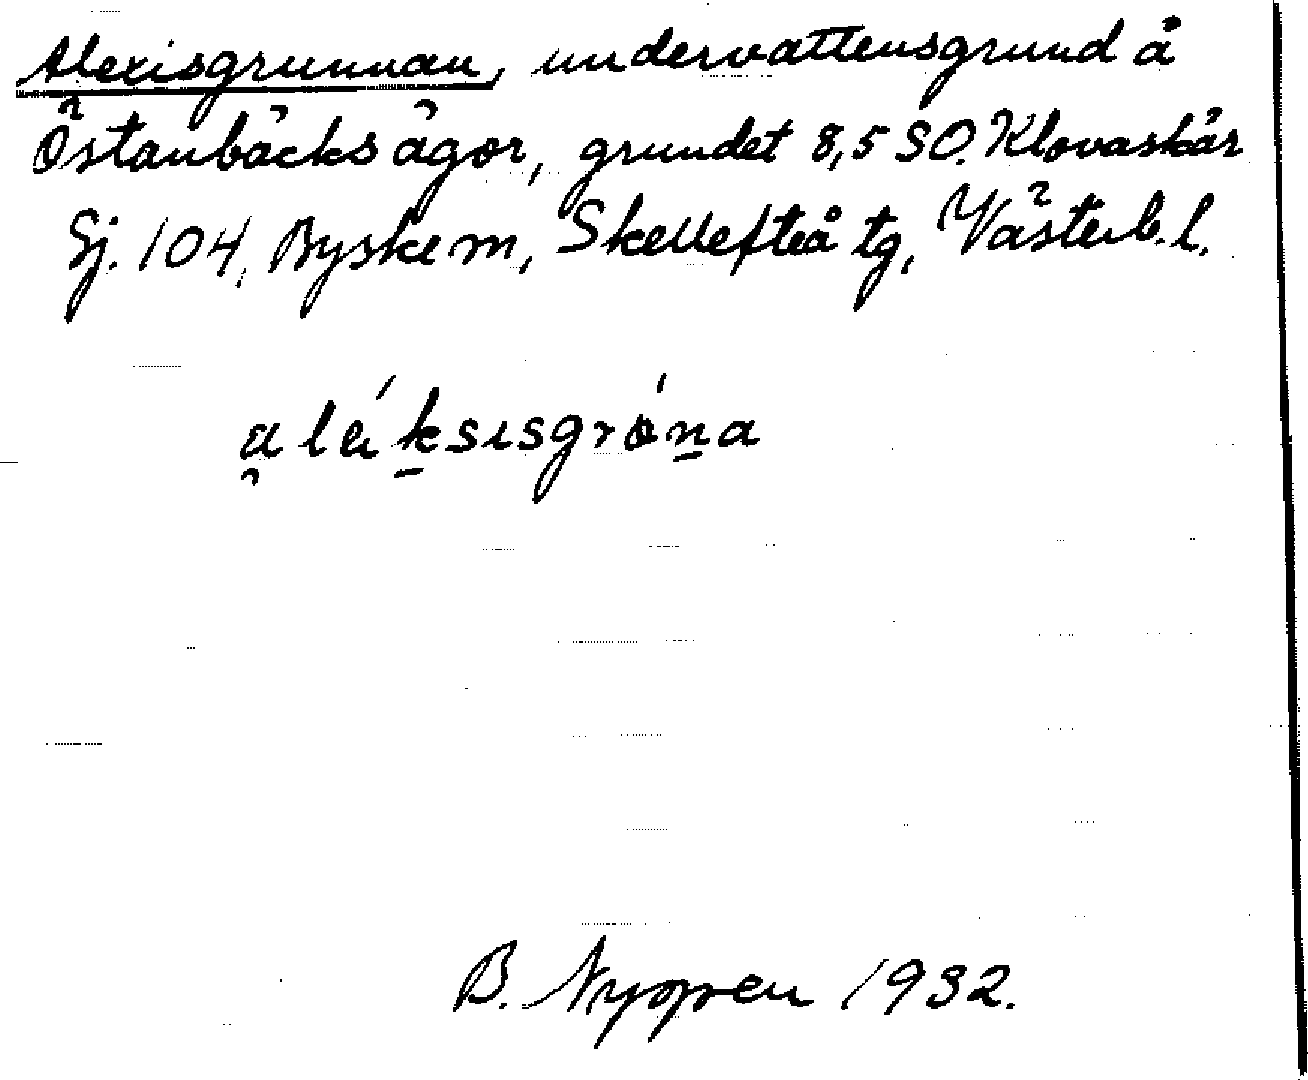 Alexisgrunnan, undervattensgrund å
Östanbäcks ägor, grundet 8,5 SO. Klovaskär
Sj. 104, Byske m, Skellefteå tg, Västerb. l.
aläksisgrona
B. Nygren 1932.